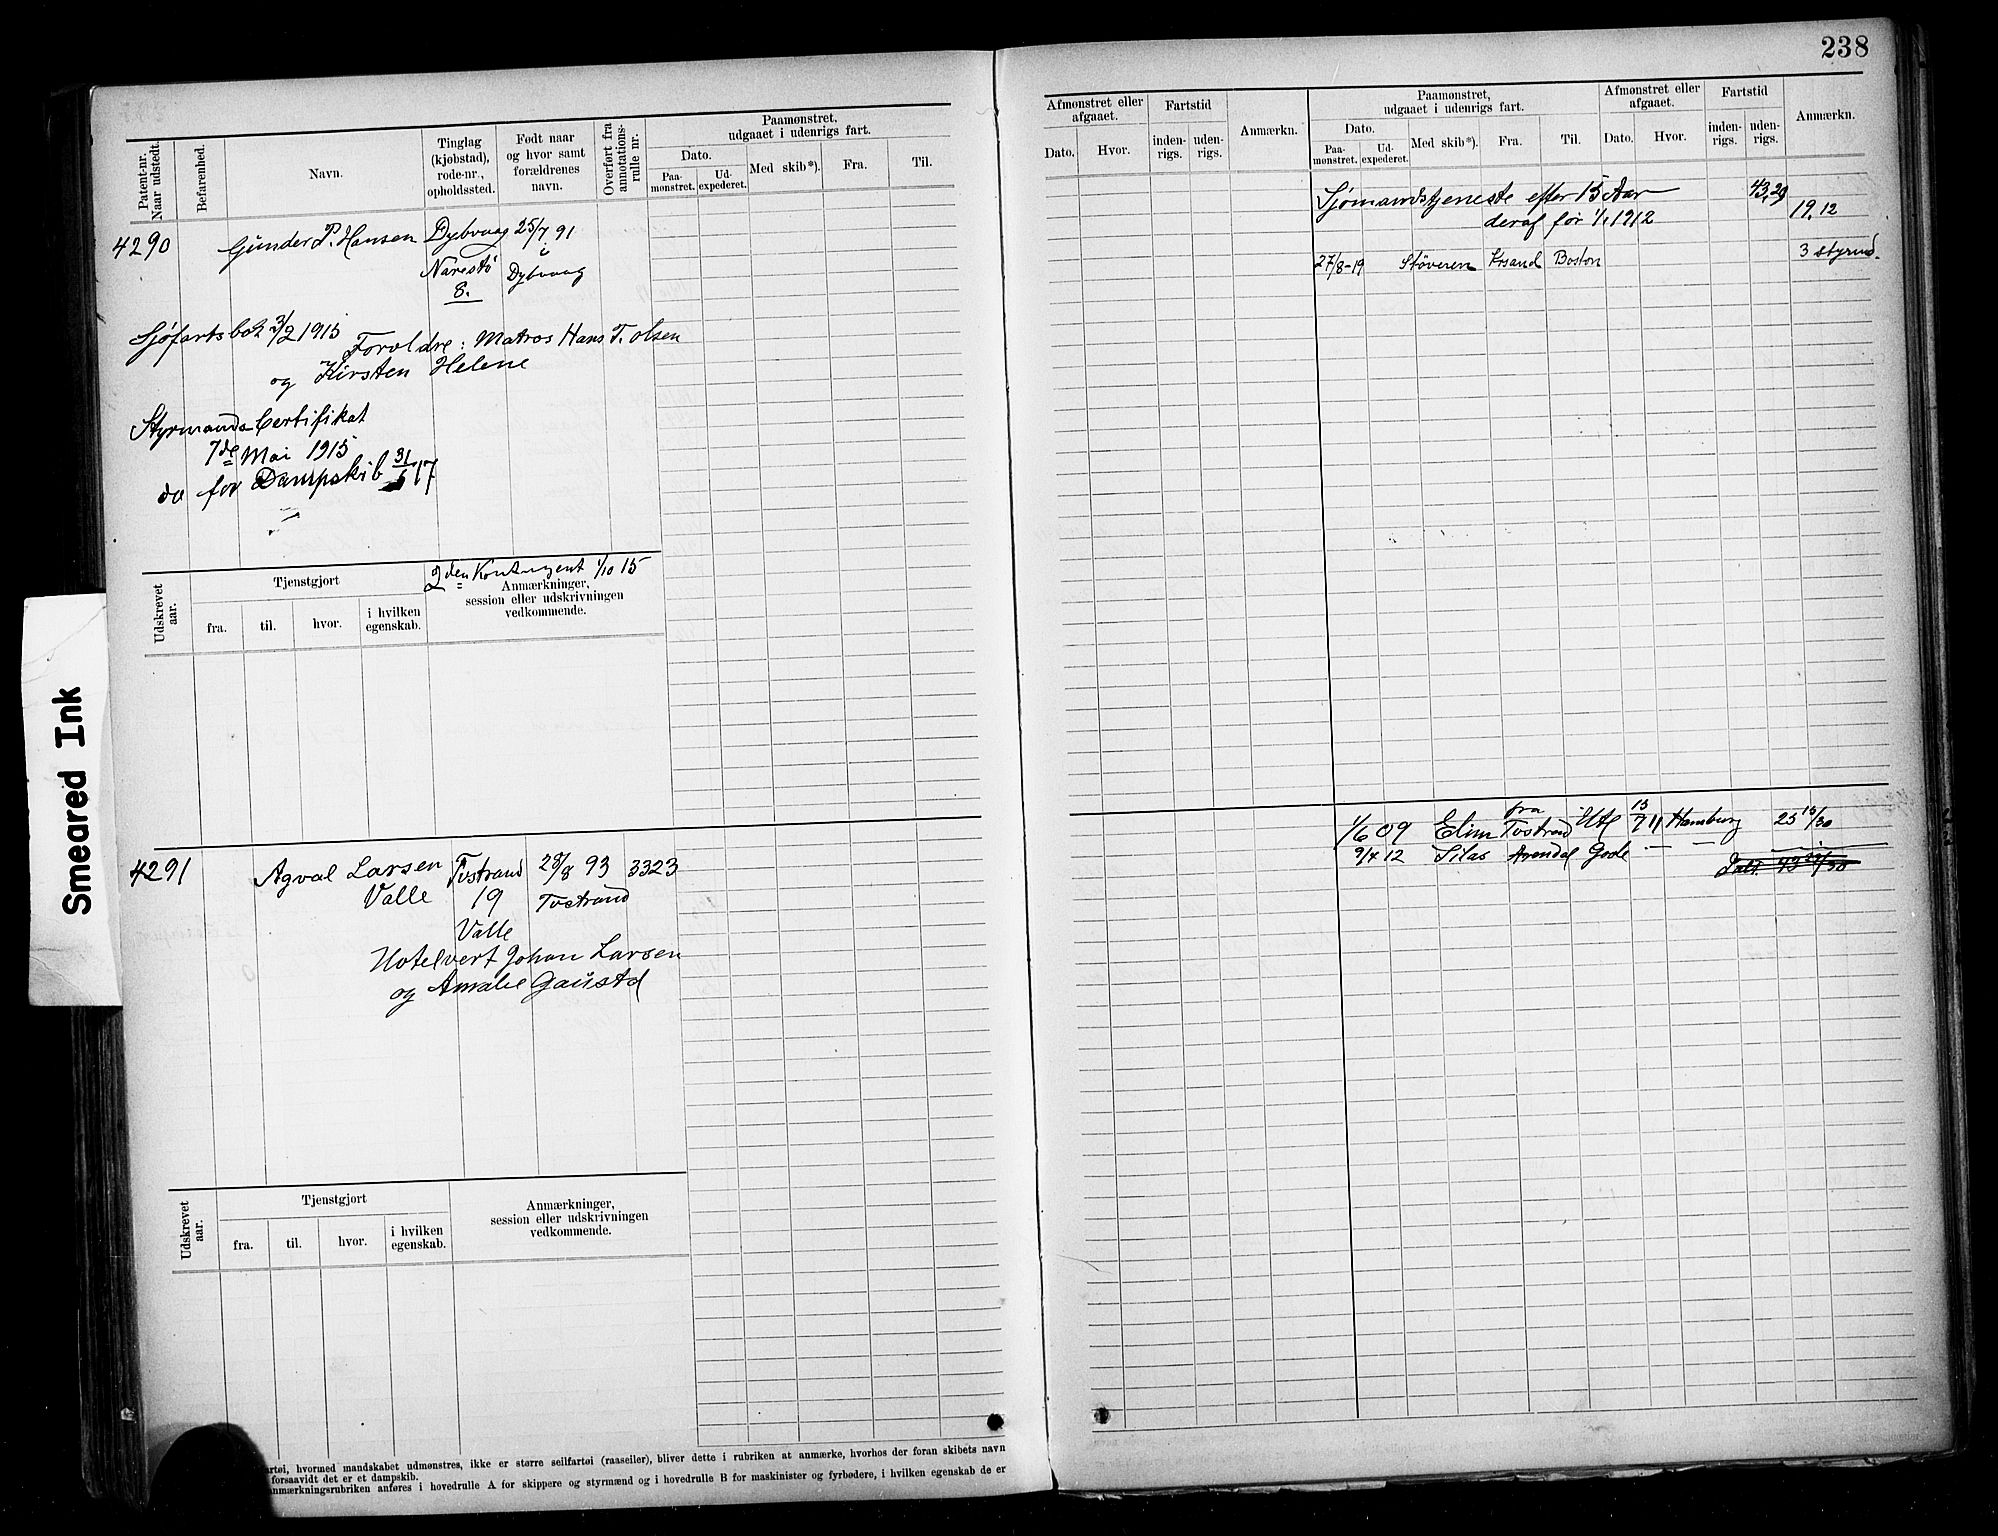 238
Patent-nr. Naar udstedt.
Befarenhed.
Navn.
Tinglag (kjøbstad), rode-nr., opholdssted.
Født naar og hvor samt forældrenes navn.
Overført fra annotations-rulle nr.
Paamønstret, udgaaet i udenrigs fart.
Dato.
Paa-mønstret.
Ud-expederet.
Med skib*).
Fra.
Til.
4290 Gunder P. Hansen Dybvaag 25/7 91
i
Narestø Dybvaag
8.
Sjøfartsbok 3/2 1915
Foreldre: Matros Hans T. Olsen
og Kirsten Helene
Styrmands Certifikat
7de Mai 1915
do for Dampskib 31/ 17
2den Kontingent 1/10 15
Udskrevet aar.
Tjenstgjort
fra.
til.
hvor.
i hvilken egenskab.
Anmærkninger, session eller udskrivningen vedkommende.
4291 Agval Larsen Tvstrand 28/8 93 3323
Valle 19 Tvstrand
Valle
Hotelvert Johan Larsen
og Amalie Gaustd
Udskrevet aar.
Tjenstgjort
fra.
til.
hvor.
i hvilken egenskab.
Anmærkninger, session eller udskrivningen vedkommende.
artøi, hvormed mandskabet udmønstres, ikke er større seilfartøi (raaseiler), bliver dette i rubriken at anmærke, hvorhos der foran skibets navn
forsaavidt det er et dampskib.
anmærkningsrubriken anføres i hovedrulle A for skippere og styrmænd og i hovedrulle B for maskinister og fyrbødere, i hvilken egenskab de er
Afmønstret eller afgaaet.
Dato.
Hvor.
Fartstid
inden-rigs.
uden-rigs.
Anmærkn.
Paamønstret, udgaaet i udenrigs fart.
Dato.
Paa-mønstret.
Ud-expederet.
Med skib*).
Fra.
Til.
Afmønstret eller afgaaet.
Dato.
Hvor.
Fartstid
inden-rigs.
uden-rigs.
Anmærkn.
Sjømandstjeneste efter 15 Aar 43,29
deraf før 1/1 1912 19,12
27/8-19 Støveren Krsand Boston 3 styrmd.
1/6 09 Elim fra Tvstrand Utl 13/7 11 Hamburg 25 13/30
9/4 12 Silas Arendal Gode — —
Ialt 43 29/30
Smeared Ink